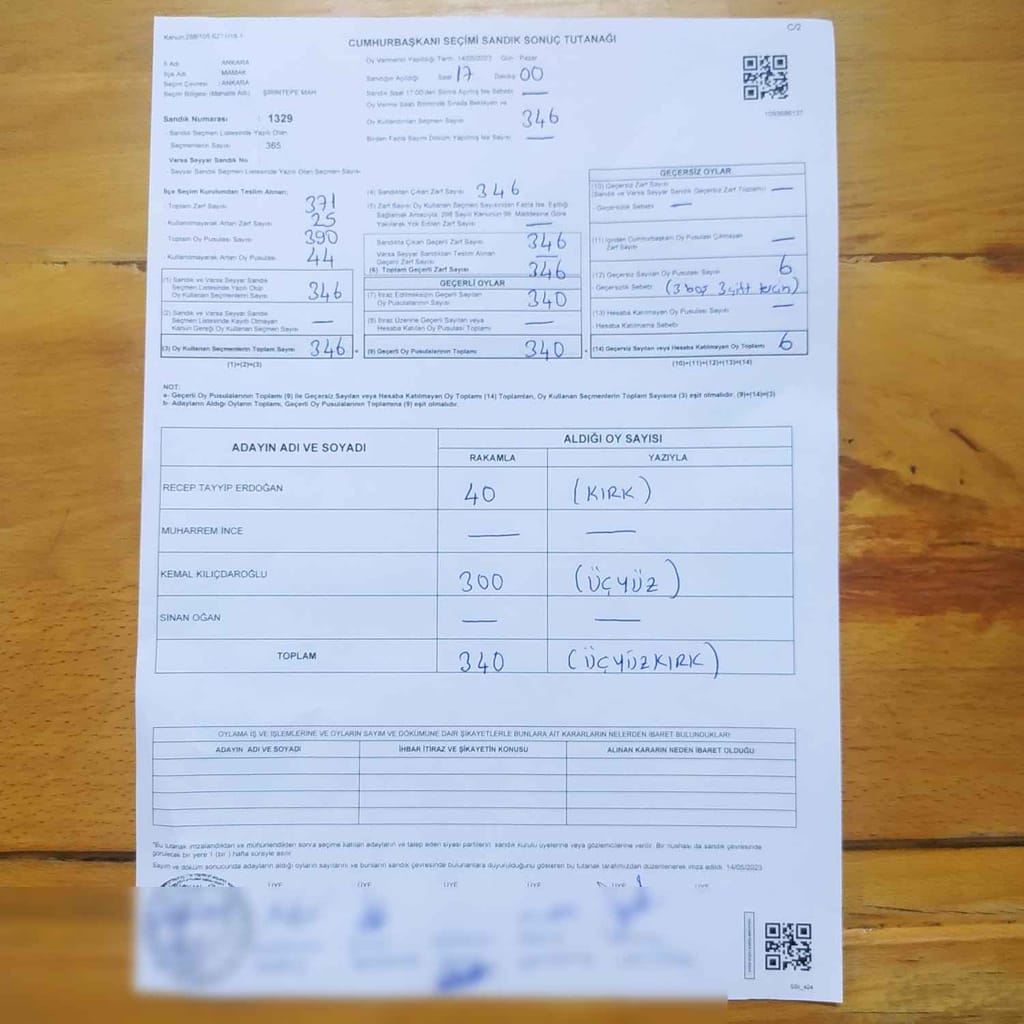 C/2
CUMHURBAŞKANI SEÇİMİ SANDIK SONUÇ TUTANAĞI
İl Adı : ANKARA
İlçe Adı : MAMAK
Seçim Çevresi : ANKARA
Seçim Bölgesi (Mahalle Adı) : ŞİRİNTEPE MAH
Sandık Numarası : 1329
- Sandık Seçmen Listesinde Yazılı Olan
Seçmenlerin Sayısı 365
Varsa Seyyar Sandık No
- Seyyar Sandık Seçmen Listesinde Yazılı Olan Seçmen Sayısı
Oy Vermenin Yapıldığı Tarih 14/05/2023 Gün Pazar
Sandığın Açıldığı Saat 17 Dakika 00
Sandık Saat 17:00'den Sonra Açılmış İse Sebebi —
Oy Verme Saati Bitiminde Sırada Bekleyen ve
Oy Kullandırılan Seçmen Sayısı 346
Birden Fazla Sayım Döküm Yapılmış İse Sayısı —
1093686137
İlçe Seçim Kurulundan Teslim Alınan;
- Toplam Zarf Sayısı 371
- Kullanılmayarak Artan Zarf Sayısı 25
- Toplam Oy Pusulası Sayısı 390
- Kullanılmayarak Artan Oy Pusulası 44
(1) Sandık ve Varsa Seyyar Sandık
Seçmen Listesinde Yazılı Olup
Oy Kullanan Seçmenlerin Sayısı 346
(2) Sandık ve Varsa Seyyar Sandık
Seçmen Listesinde Kayıtlı Olmayan
Kanun Gereği Oy Kullanan Seçmen Sayısı —
(3) Oy Kullanan Seçmenlerin Toplam Sayısı 346
(1)+(2)=(3)
(4) Sandıktan Çıkan Zarf Sayısı 346
(5) Zarf Sayısı Oy Kullanan Seçmen Sayısından Fazla İse, Eşitliği
Sağlamak Amacıyla, 298 Sayılı Kanunun 98. Maddesine Göre
Yakılarak Yok Edilen Zarf Sayısı —
Sandıkta Çıkan Geçerli Zarf Sayısı 346
Varsa Seyyar Sandıktan Teslim Alınan
Geçerli Zarf Sayısı —
(6) Toplam Geçerli Zarf Sayısı 346
GEÇERLİ OYLAR
(7) İtiraz Edilmeksizin Geçerli Sayılan
Oy Pusulalarının Sayısı 340
(8) İtiraz Üzerine Geçerli Sayılan veya
Hesaba Katılan Oy Pusulası Toplamı —
(9) Geçerli Oy Pusulalarının Toplamı 340
GEÇERSİZ OYLAR
(10) Geçersiz Zarf Sayısı
(Sandık ve Varsa Seyyar Sandık Geçersiz Zarf Toplamı) —
- Geçersizlik Sebebi : —
(11) İçinden Cumhurbaşkanı Oy Pusulası Çıkmayan
Zarf Sayısı —
(12) Geçersiz Sayılan Oy Pusulası Sayısı 6
- Geçersizlik Sebebi : (3 boş 3 çift tercih)
(13) Hesaba Katılmayan Oy Pusulası Sayısı —
- Hesaba Katılmama Sebebi :
(14) Geçersiz Sayılan veya Hesaba Katılmayan Oy Toplamı 6
(10)+(11)+(12)+(13)=(14)
NOT:
a- Geçerli Oy Pusulalarının Toplamı (9) ile Geçersiz Sayılan veya Hesaba Katılmayan Oy Toplamı (14) Toplamları, Oy Kullanan Seçmenlerin Toplam Sayısına (3) eşit olmalıdır. (9)+(14)=(3)
b- Adayların Aldığı Oyların Toplamı, Geçerli Oy Pusulalarının Toplamına (9) eşit olmalıdır.
ADAYIN ADI VE SOYADI ALDIĞI OY SAYISI
RAKAMLA YAZIYLA
RECEP TAYYİP ERDOĞAN 40 (KIRK)
MUHARREM İNCE — —
KEMAL KILIÇDAROĞLU 300 (ÜÇYÜZ)
SİNAN OĞAN — —
TOPLAM 340 (ÜÇYÜZKIRK)
OYLAMA İŞ VE İŞLEMLERİNE VE OYLARIN SAYIM VE DÖKÜMÜNE DAİR ŞİKAYETLERLE BUNLARA AİT KARARLARIN NELERDEN İBARET BULUNDUKLARI
ADAYIN ADI VE SOYADI İHBAR İTİRAZ VE ŞİKAYETİN KONUSU ALINAN KARARIN NEDEN İBARET OLDUĞU
"Bu tutanak imzalandıktan ve mühürlendikten sonra seçime katılan adayların ve talep eden siyasi partilerin sandık kurulu üyelerine veya gözlemcilerine verilir. Bir nüshası da sandık çevresinde
görülecek bir yere 1 (bir) hafta süreyle asılır.
Sayım ve döküm sonucunda adayların aldığı oyların sayılarını ve bunların sandık çevresinde bulunanlara duyurulduğunu gösteren bu tutanak tarafımızdan düzenlenerek imza edildi. 14/05/2023
ÜYE ÜYE ÜYE ÜYE ÜYE ÜYE